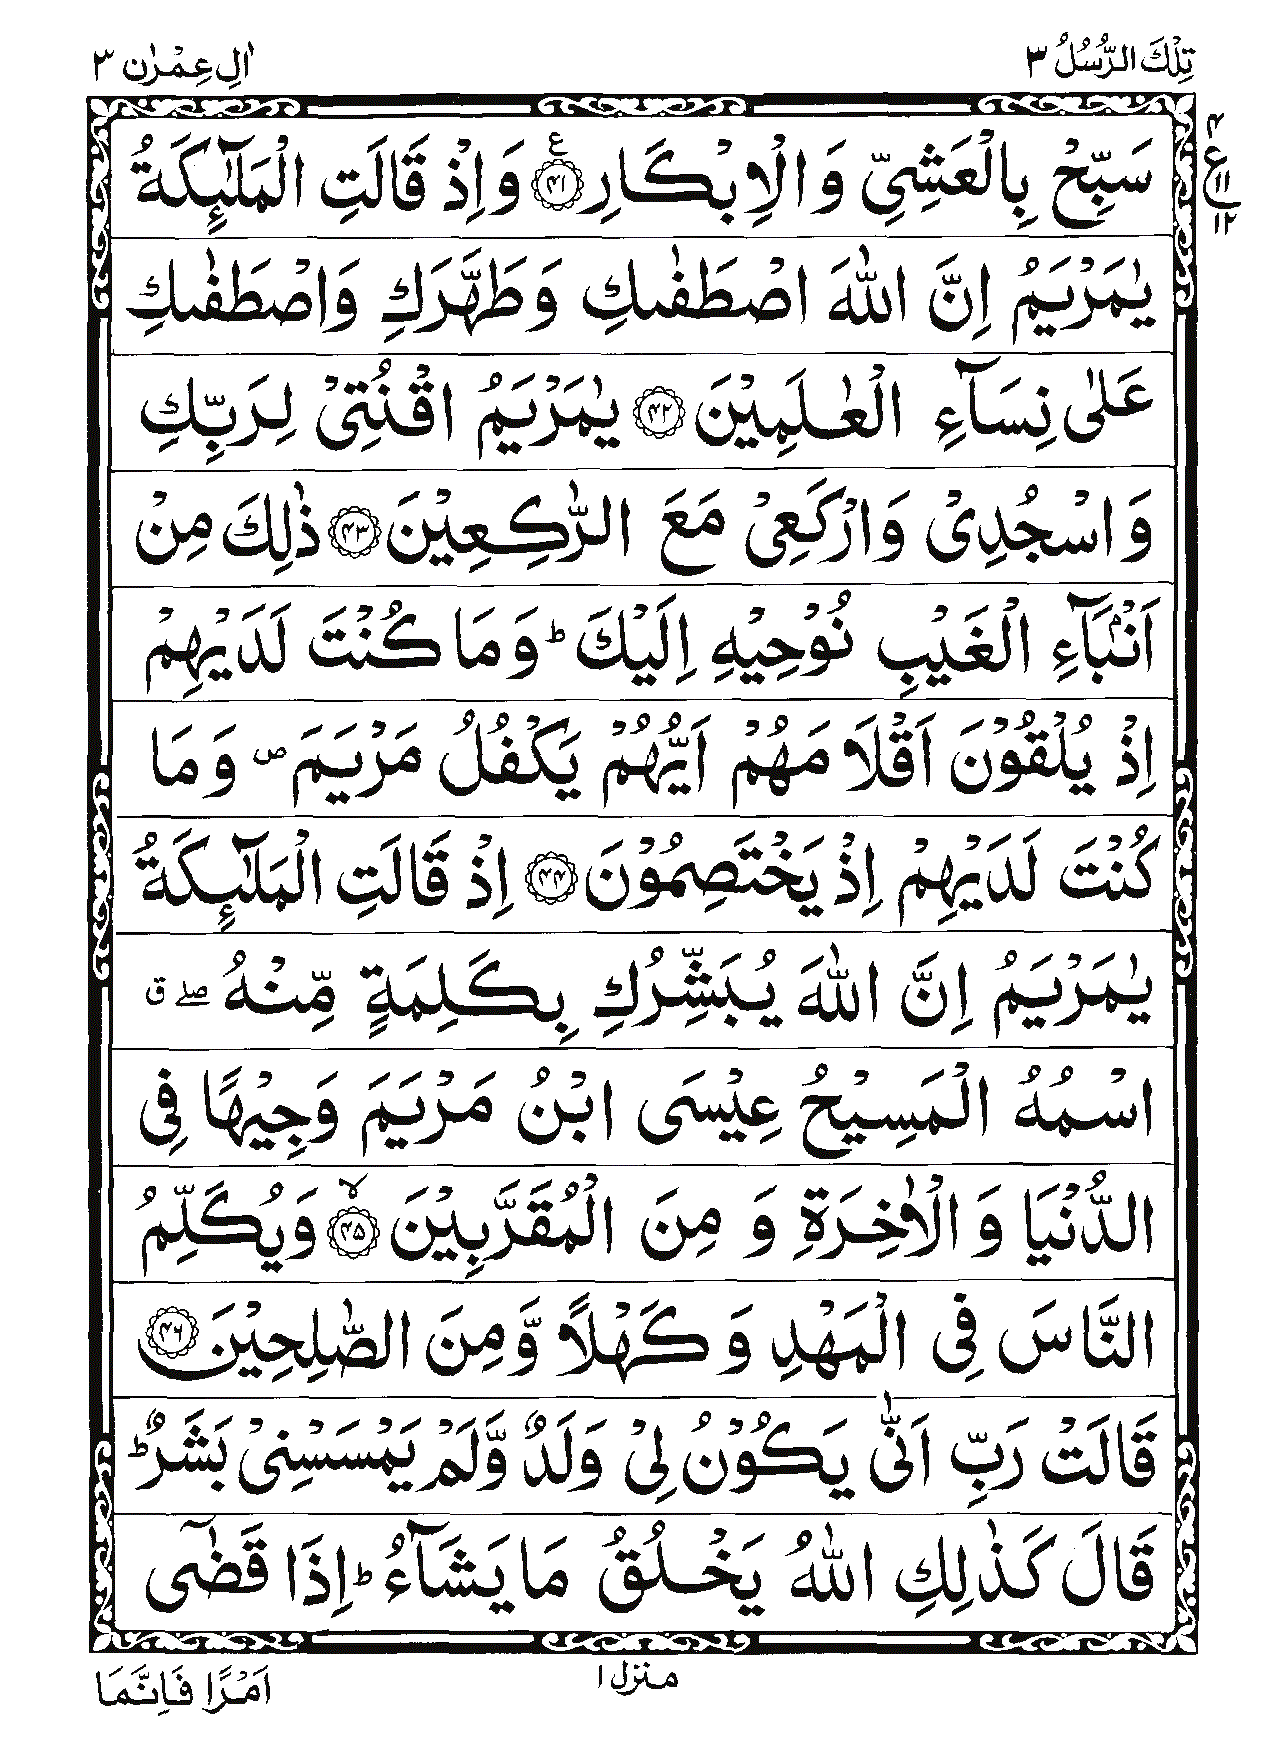 تِلْكَ الرُّسُلُ ٣
اٰلِ عِمْرٰن ٣
٤
ع
١١
١٢
سَبِّحْ بِالْعَشِيِّ وَ الْاِبْكَارِ ۴۱ ع وَ اِذْ قَالَتِ الْمَلٰٓئِكَةُ
يٰمَرْيَمُ اِنَّ اللّٰهَ اصْطَفٰىكِ وَ طَهَّرَكِ وَاصْطَفٰىكِ
عَلٰى نِسَآءِ الْعٰلَمِيْنَ ۴۲ يٰمَرْيَمُ اقْنُتِيْ لِرَبِّكِ
وَ اسْجُدِيْ وَارْكَعِيْ مَعَ الرّٰكِعِيْنَ ۴۳ ذٰلِكَ مِنْ
اَنْۢبَآءِ الْغَيْبِ نُوْحِيْهِ اِلَيْكَ ؕ وَ مَا كُنْتَ لَدَيْهِمْ
اِذْ يُلْقُوْنَ اَقْلَا مَهُمْ اَيُّهُمْ يَكْفُلُ مَرْيَمَ ۪ وَ مَا
كُنْتَ لَدَيْهِمْ اِذْ يَخْتَصِمُوْنَ ۴۴ اِذْ قَالَتِ الْمَلٰٓئِكَةُ
يٰمَرْيَمُ اِنَّ اللّٰهَ يُبَشِّرُكِ بِكَلِمَةٍ مِّنْهُ ۖ ق
اسْمُهُ الْمَسِيْحُ عِيْسَى ابْنُ مَرْيَمَ وَجِيْهًا فِي
الدُّنْيَا وَ الْاٰخِرَةِ وَ مِنَ الْمُقَرَّبِيْنَ ۴۵ ۙ وَيُكَلِّمُ
النَّاسَ فِي الْمَهْدِ وَ كَهْلًا وَّ مِنَ الصّٰلِحِيْنَ ۴۶
قَالَتْ رَبِّ اَنّٰى يَكُوْنُ لِيْ وَلَدٌ وَّلَمْ يَمْسَسْنِيْ بَشَرٌ ؕ
قَالَ كَذٰلِكِ اللّٰهُ يَخْلُقُ مَا يَشَآءُ ؕ اِذَا قَضٰۤى
منزل ١
اَمْرًا فَاِنَّمَا